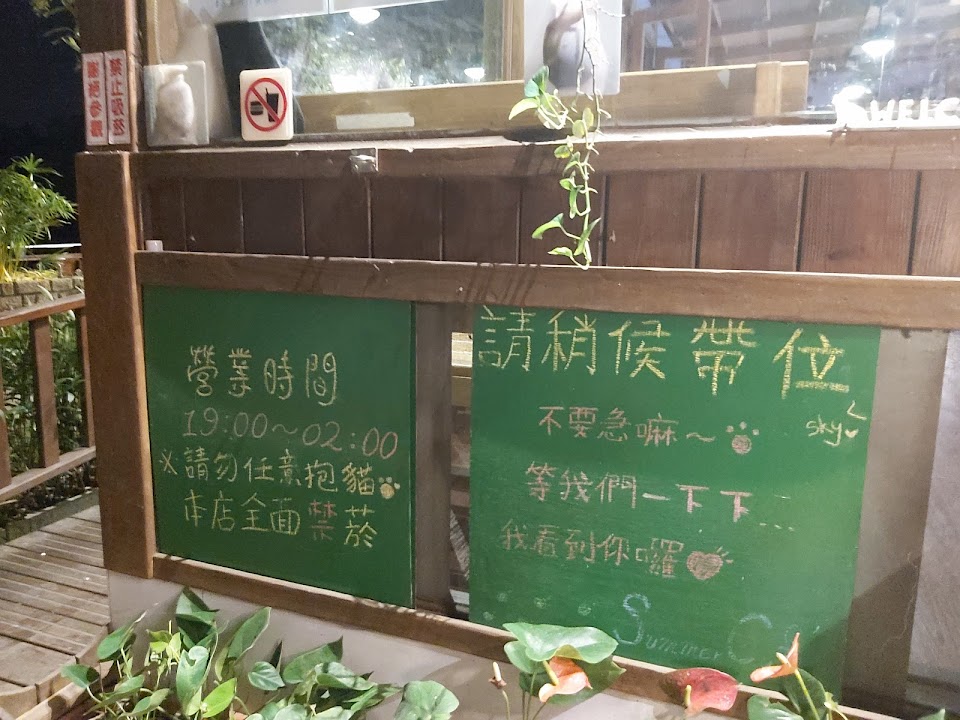 禁止吸菸
謝絕參觀
WELC
營業時間
19:00～02:00
※請勿任意抱貓
本店全面禁菸
請稍候帶位
sky
不要急嘛～
等我們一下下...
我看到你囉
Summer